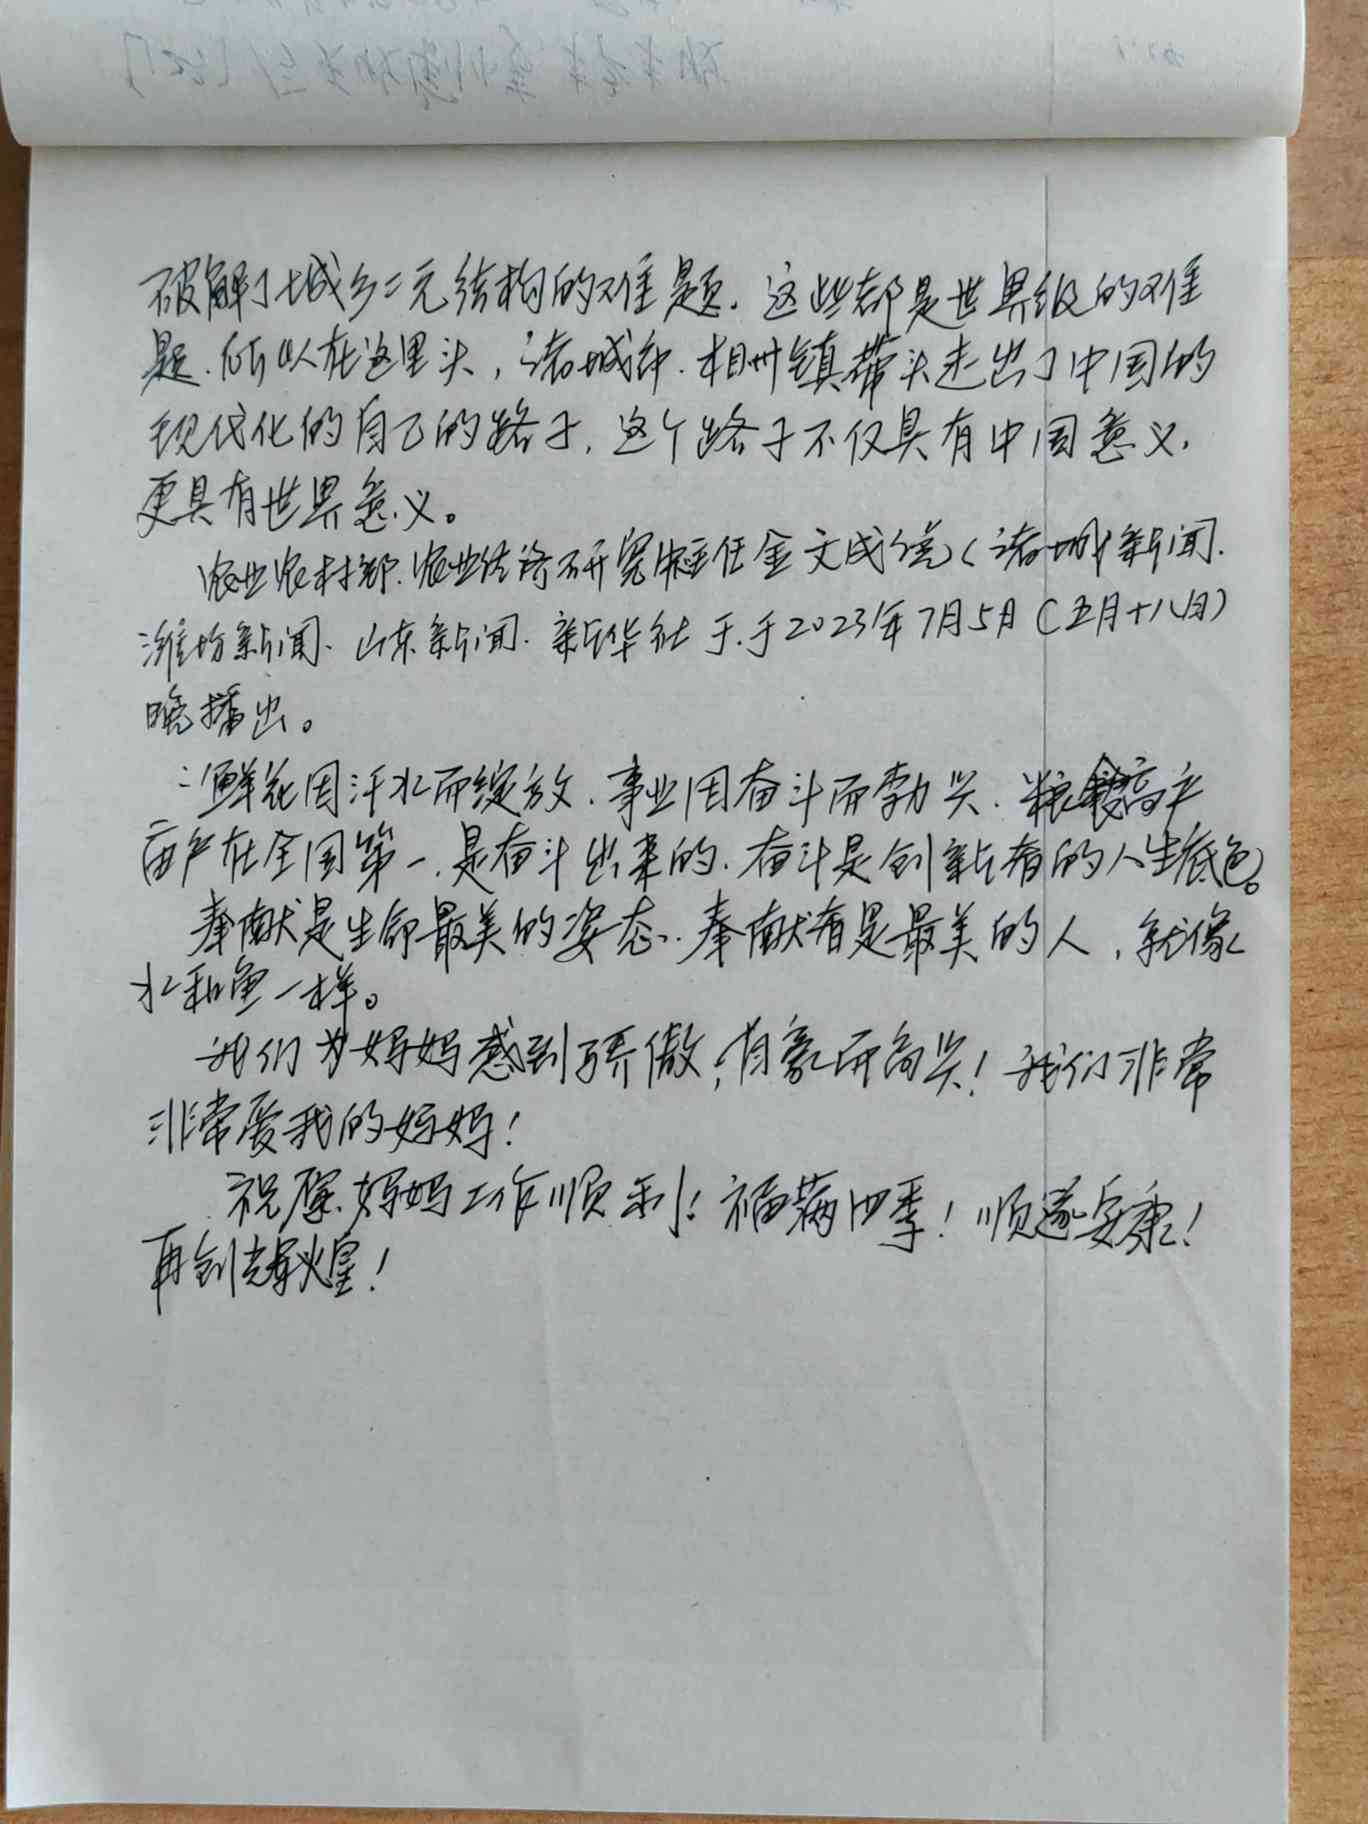 破解了城乡二元结构的难题. 这些都是世界级的难
题. 所以在这里头, 诸城和. 相州镇带头走出了中国的
现代化的自己的路子, 这个路子不仅具有中国意义,
更具有世界意义。
农业农村部. 农业经济研究中心主任金文成说 (诸城新闻.
潍坊新闻、山东新闻. 新华社于.于2023年7月5月(五月十八日)
晚播出。
鲜花因汗水而绽放. 事业因奋斗而勃兴. 粮食高产
亩产在全国第一. 是奋斗出来的. 奋斗是创新者的人生底色。
奉献是生命最美的姿态. 奉献者是最美的人, 就像
水和鱼一样。
我们为妈妈感到骄傲, 自豪而高兴! 我们非常
非常爱我的妈妈!
祝愿妈妈工作顺利! 福满四季! 顺遂安康!
再创辉煌!